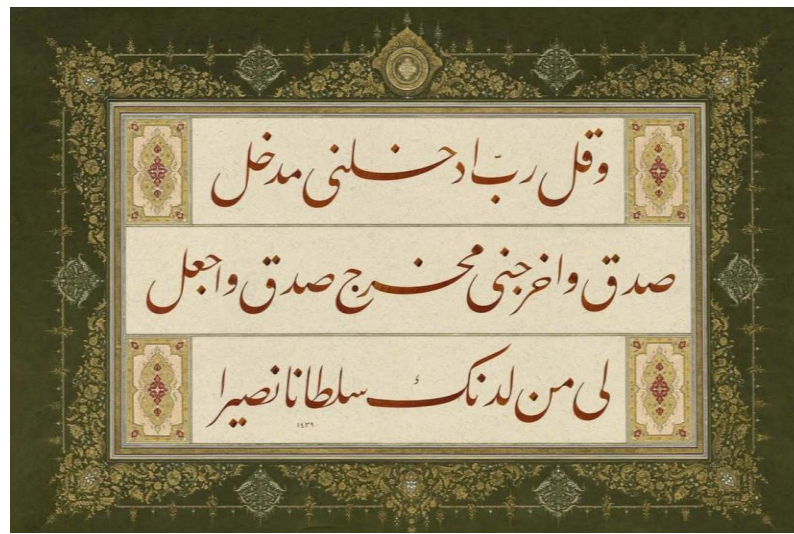 وقل ربّ ادخلنی مدخل
صدق واخرجنی مخرج صدق واجعل
لی من لدنک سلطانا نصیرا
١٤٣٩